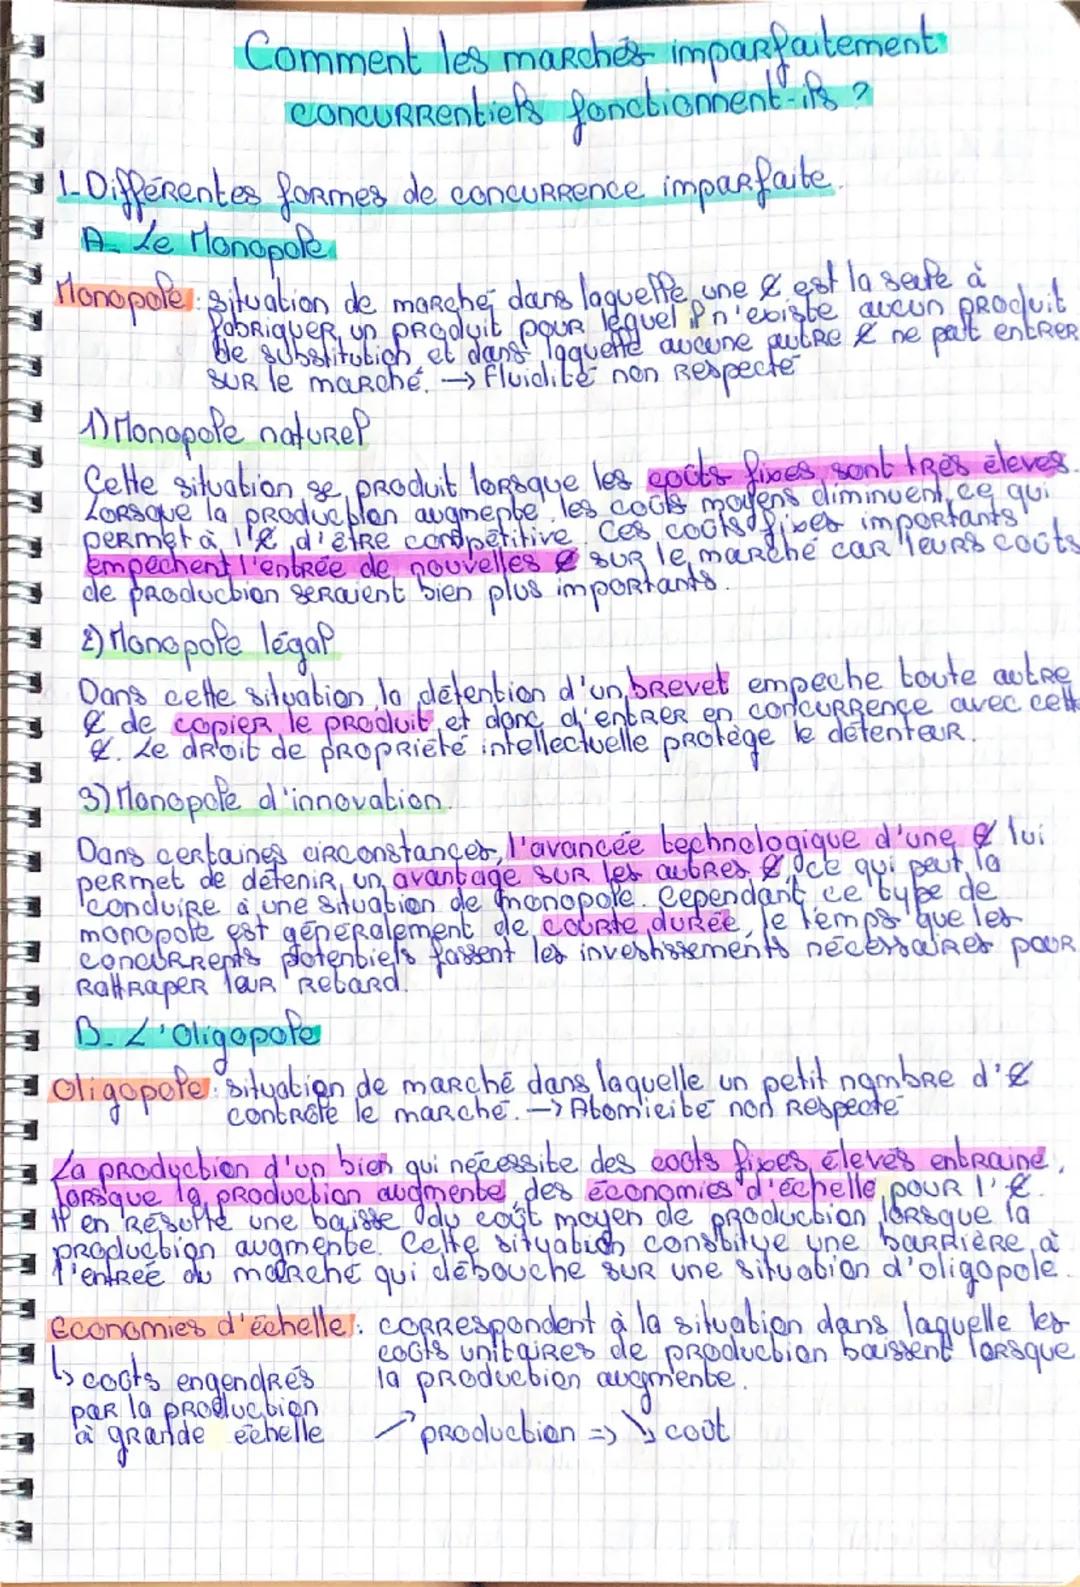 Comment les marchés imparfaitement
concurrentiels fonctionnent-ils ?
1-Différentes formes de concurrence imparfaite.
A- Le Monopole
Monopole : situation de marché dans laquelle une € est la seule à
fabriquer un produit pour lequel il n'existe aucun produit
de substitution et dans laquelle aucune autre € ne peut entrer
sur le marché. → fluidité non respecté
1) Monopole naturel
Cette situation se produit lorsque les coûts fixes sont très élevés.
Lorsque la production augmente, les coûts moyens diminuent, ce qui
permet à l'€ d'être compétitive. Ces coûts fixes importants
empêchent l'entrée de nouvelles € sur le marché car leurs coûts
de production seraient bien plus importants.
2) Monopole légal
Dans cette situation, la détention d'un brevet empeche toute autre
€ de copier le produit et donc d'entrer en concurrence avec cette
€. Le droit de propriété intellectuelle protège le détenteur.
3) Monopole d'innovation.
Dans certaines circonstances, l'avancée technologique d'une € lui
permet de détenir un avantage sur les autres €, ce qui peut la
conduire à une situation de monopole. Cependant ce type de
monopole est généralement de courte durée, le temps que les
concurrents potentiels fassent les investissements nécessaires pour
rattraper leur retard.
B. L'Oligopole
Oligopole : situation de marché dans laquelle un petit nombre d'€
contrôle le marché. → Atomicité non respecté
La production d'un bien qui nécessite des coûts fixes élevés entraine,
lorsque la production augmente, des économies d'échelle pour l'€.
Il en résulte une baisse du coût moyen de production lorsque la
production augmente. Cette situation constitue une barrière à
l'entrée du marché qui débouche sur une situation d'oligopole.
Economies d'échelle : correspondent à la situation dans laquelle les
coûts unitaires de production baissent lorsque
la production augmente.
↳ coûts engendrés
par la production
à grande échelle
↗ production => ↘ coût